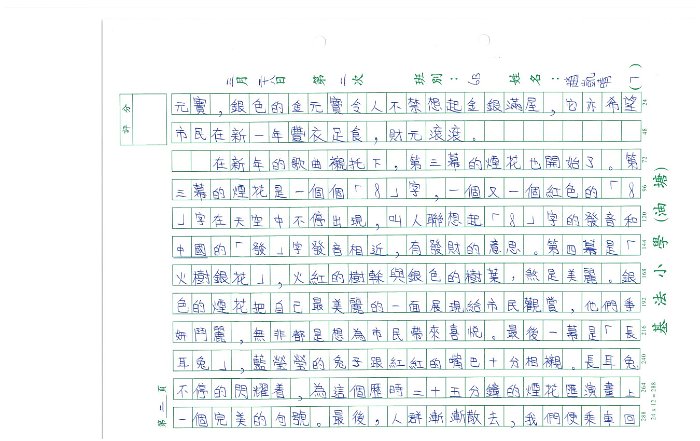 三月十八日 第二次 班別：6B 姓名： (7)
評分
元寶，銀色的金元寶令人不禁想起金銀滿屋，它亦希望 24
市民在新一年豐衣足食，財元滾滾。 48
在新年的歌曲襯托下，第三幕的煙花也開始了。第 72
三幕的煙花是一個個「8」字，一個又一個紅色的「8 96
」字在天空中不停出現，叫人聯想起「8」字的發音和 120
中國的「發」字發音相近，有發財的意思。第四幕是「 144
火樹銀花」，火紅的樹幹與銀色的樹葉，煞是美麗。銀 168
色的煙花把自己最美麗的一面展現給市民觀賞，他們爭 192
妍鬥麗，無非都是想為市民帶來喜悅。最後一幕是「長 216
耳兔」，藍瑩瑩的兔子跟紅紅的嘴巴十分相襯。長耳兔 240
不停的閃耀着，為這個歷時二十五分鐘的煙花匯演畫上 264
一個完美的句號。最後，人群漸漸散去，我們便乘車回 288
第二頁
24 x 12 = 288
基法小學（油塘）